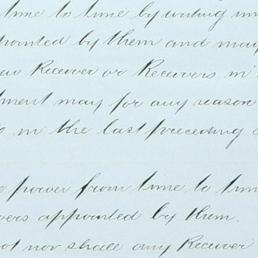 time to time by writing un
pointed by them and may
Receiver or Receivers in
ment may for any reason
in the last preceding
power from time to tim
vers appointed by them.
not nor shall any Receiver